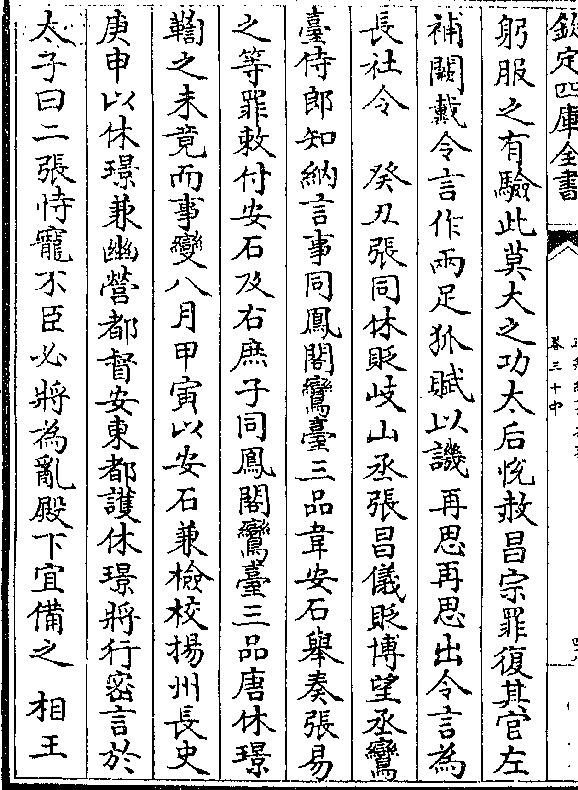 欽定四庫全書
卷三十中
躬服之有驗此莫大之功太后恱赦昌宗罪復其官左
補闕戴令言作兩足狐賦以譏再思再思出令言為
長社令　癸丑張同休貶岐山丞張昌儀貶博望丞鸞
臺侍郎知納言事同鳳閣鸞臺三品韋安石舉奏張易
之等罪敕付安石及右庶子同鳳閣鸞臺三品唐休璟
鞫之未竟而事變八月甲寅以安石兼檢校揚州長史
庚申以休璟兼幽營都督安東都護休璟將行密言於
太子曰二張恃寵不臣必將為亂殿下宜備之　相王